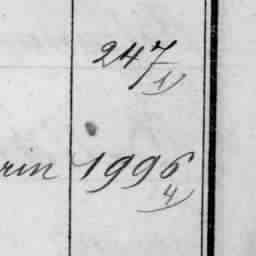 247
1)
rin 1996
4)